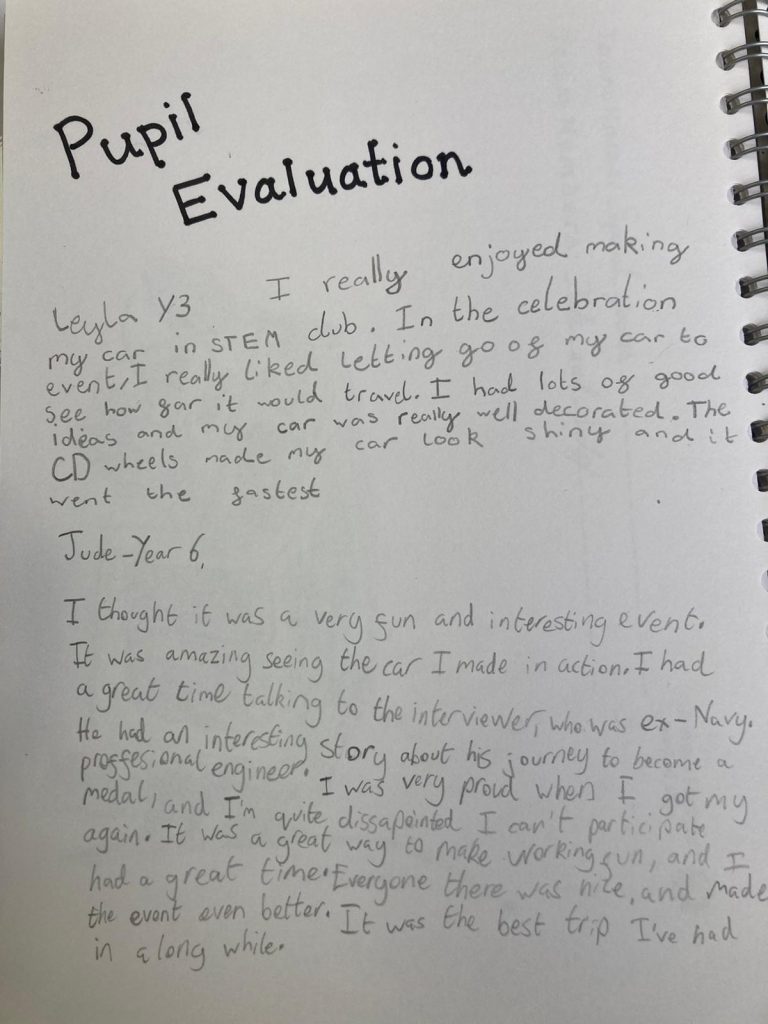 Pupil
Evaluation
Leyla Y3 I really enjoyed making
my car in STEM club. In the celebration
event, I really liked letting go of my car to
see how far it would travel. I had lots of good
ideas and my car was really well decorated. The
CD wheels made my car look shiny and it
went the fastest
Jude - Year 6,
I thought it was a very fun and interesting event.
It was amazing seeing the car I made in action. I had
a great time talking to the interviewer, who was ex-Navy.
He had an interesting story about his journey to become a
proffesional engineer. I was very proud when I got my
medal, and I'm quite dissapointed I can't participate
again. It was a great way to make working fun, and I
had a great time. Everyone there was nice, and made
the event even better. It was the best trip I've had
in a long while.